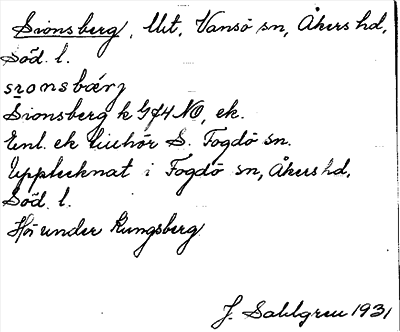 Sionsberg, Utt. Vansö sn, Åkers hd,
Söd. l.
sɪonsbærj
Sionsberg k G74 NO, ek.
Enl. ek tillhör S. Fogdö sn.
Upptecknat i Fogdö sn, Åkers hd,
Söd. l.
Hör under Kungsberg
J. Sahlgren 1931